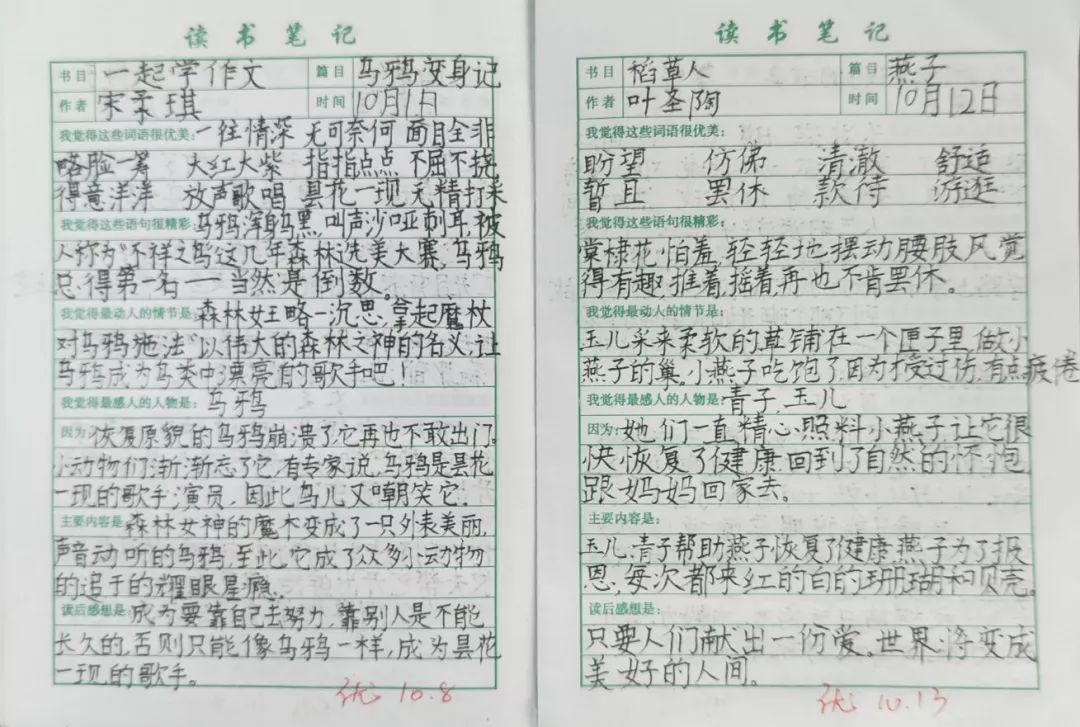 读书笔记
书目 一起学作文 篇目 乌鸦变身记
作者 宋柔琪 时间 10月1日
我觉得这些词语很优美: 一往情深 无可奈何 面目全非
略脸一筹 大红大紫 指指点点 不屈不挠
得意洋洋 放声歌唱 昙花一现 无精打采
我觉得这些语句很精彩: 乌鸦浑身乌黑,叫声沙哑刺耳,被
人称为"不祥之鸟"这几年森林选美大赛,乌鸦
总得第一名——当然是倒数。
我觉得最动人的情节是: 森林女王略一沉思,拿起魔杖
对乌鸦施法"以伟大的森林之神的名义,让
乌鸦成为鸟类中漂亮的歌手吧!
我觉得最感人的人物是: 乌鸦
因为: 恢复原貌的乌鸦崩溃了它再也不敢出门。
小动物们渐渐忘了它,有专家说,乌鸦是昙花
一现的歌手演员,因此鸟儿又嘲笑它.
主要内容是: 森林女神的魔术变成了一只外表美丽,
声音动听的乌鸦,至此,它成了众多小动物
的追于的耀眼星瘾.
读后感想是: 成为要靠自己去努力,靠别人是不能
长久的,否则只能像乌鸦一样,成为昙花
一现的歌手。
优 10.8
读书笔记
书目 稻草人 篇目 燕子
作者 叶圣陶 时间 10月12日
我觉得这些词语很优美:
盼望 仿佛 清澈 舒适
暂且 罢休 款待 游逛
我觉得这些语句很精彩:
棠棣花怕羞,轻轻地摆动腰肢风觉
得有趣,推着,摇着再也不肯罢休。
我觉得最动人的情节是:
玉儿采来柔软的草铺在一个匣子里,做小
燕子的巢。小燕子吃饱了,因为受过伤,有点疲倦
我觉得最感人的人物是: 青子,玉儿
因为: 她们一直精心照料小燕子,让它很
快恢复了健康,回到了自然的怀抱
跟妈妈回家去。
主要内容是:
玉儿,青子帮助燕子恢复了健康,燕子为了报
恩,每次都来红的白的珊瑚和贝壳。
读后感想是:
只要人们献出一份爱,世界将变成
美好的人间。
优 10.13